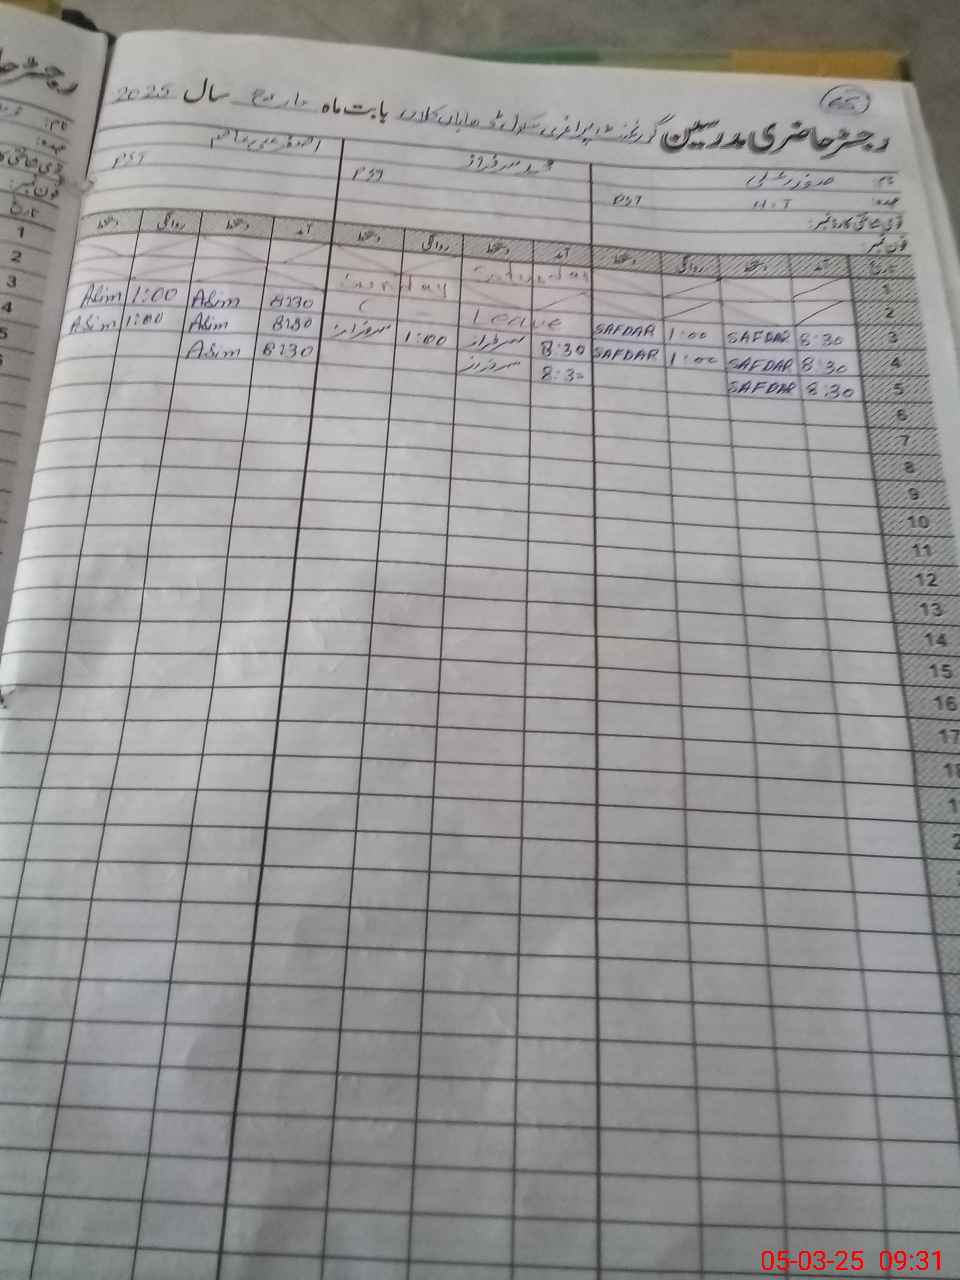 65
رجسٹر حاضری مدرسین گورنمنٹ پرائمری سکول کلاں بابت ماہ مارچ سال 2025
نام: صفدر علی محمد سرفراز
عہدہ: H.T PST PST PST
قومی شناختی کارڈ نمبر:
فون نمبر:
تاریخ آمد دستخط روانگی دستخط آمد دستخط روانگی دستخط آمد دستخط روانگی دستخط
1 Saturday
2 Sunday
3 8:30 SAFDAR 1:00 SAFDAR Leave 8:30 Asim 1:00 Asim
4 8:30 SAFDAR 1:00 SAFDAR 8:30 سرفراز 1:00 سرفراز 8:30 Asim 1:00 Asim
5 8:30 SAFDAR 8:30 سرفراز 8:30 Asim
6
7
8
9
10
11
12
13
14
15
16
17
نام:
عہدہ:
فون نمبر:
تاریخ
1
2
3
4
5
05-03-25 09:31